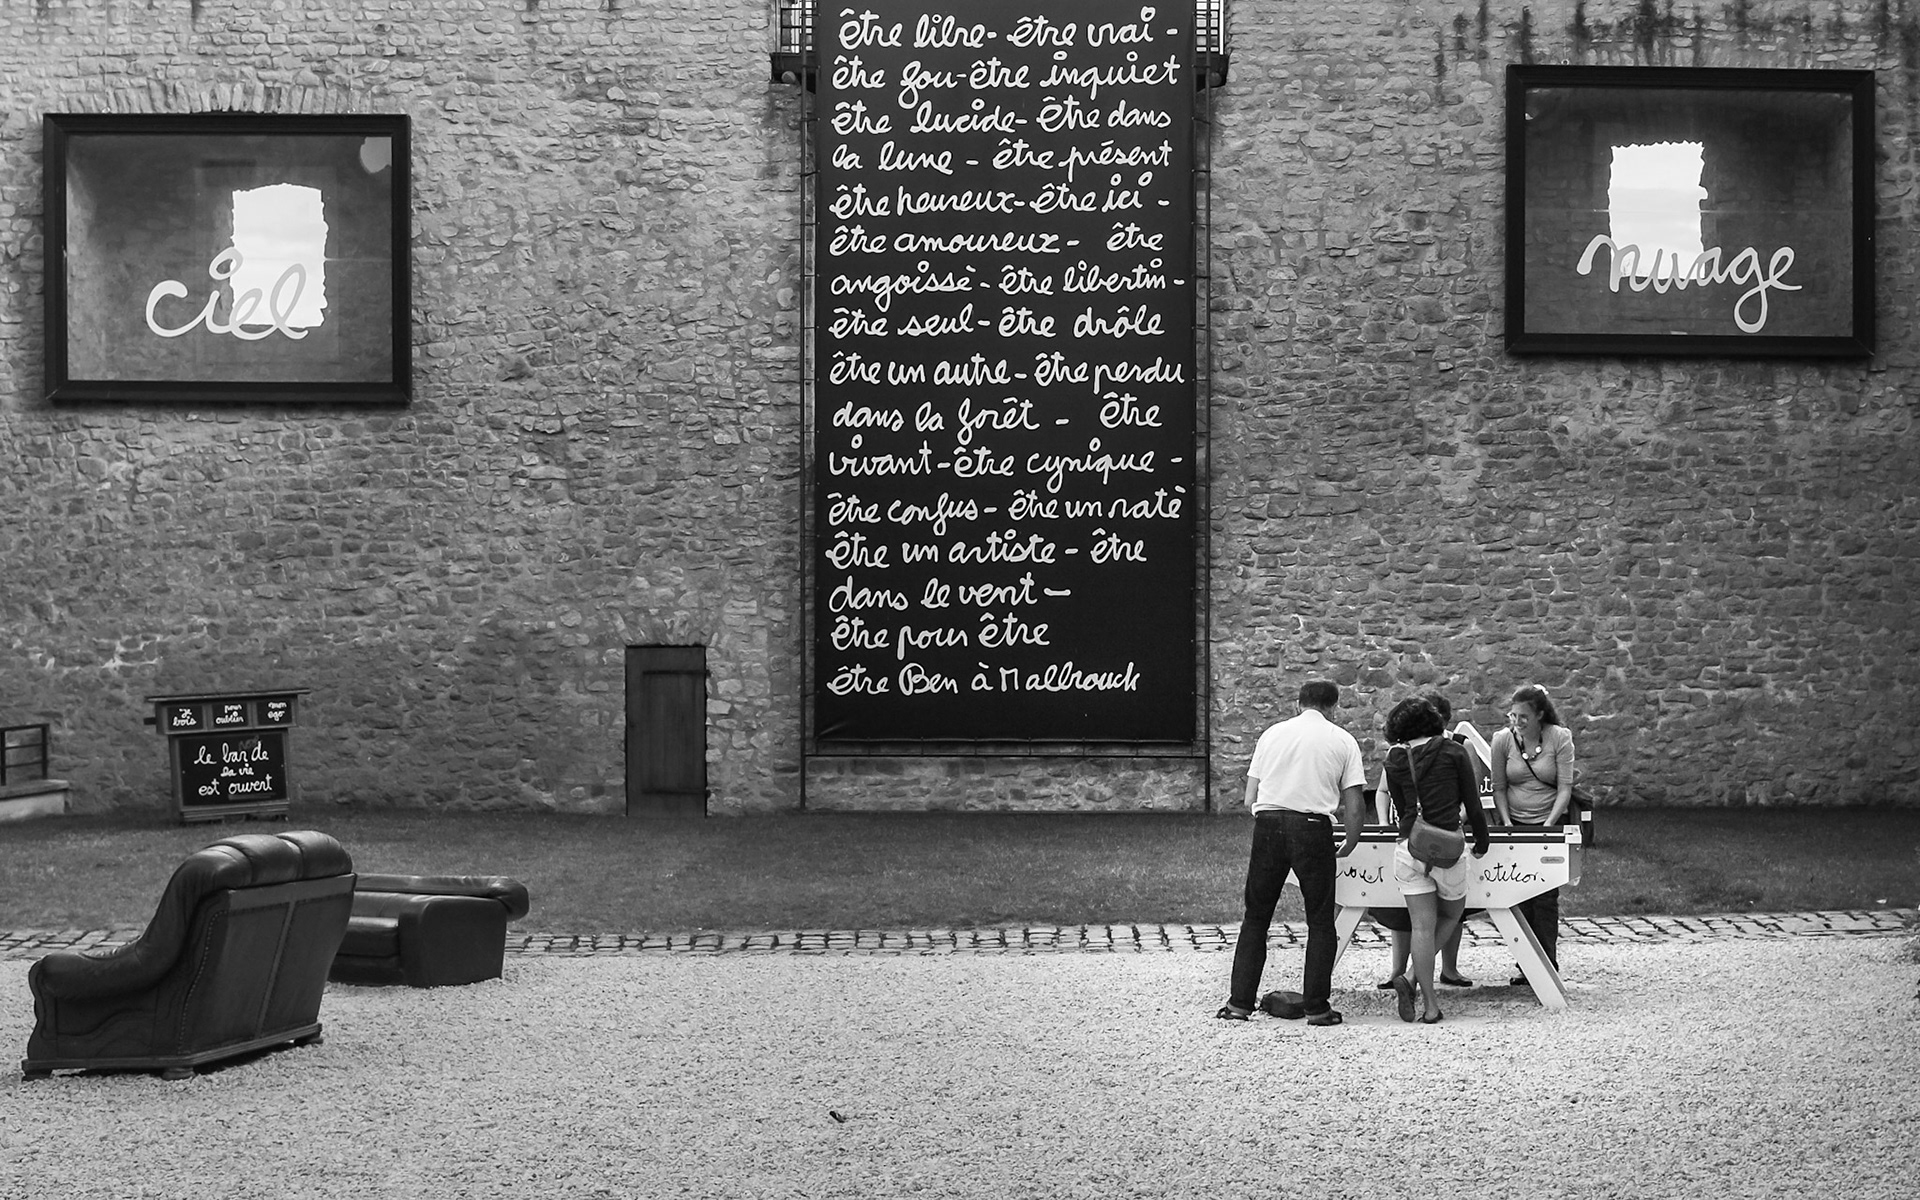 être libre - être vrai -
être fou - être inquiet
être lucide - être dans
la lune - être présent
être heureux - être ici -
être amoureux - être
angoissè - être libertin -
être seul - être drôle
être un autre - être perdu
dans la forêt - être
vivant - être cynique -
être confus - être un ratè
être un artiste - être
dans le vent -
être pour être
être Ben à Malbrouck
ciel
nuage
je bois
pour oublier
mon ego
le bar de
la vie
est ouvert